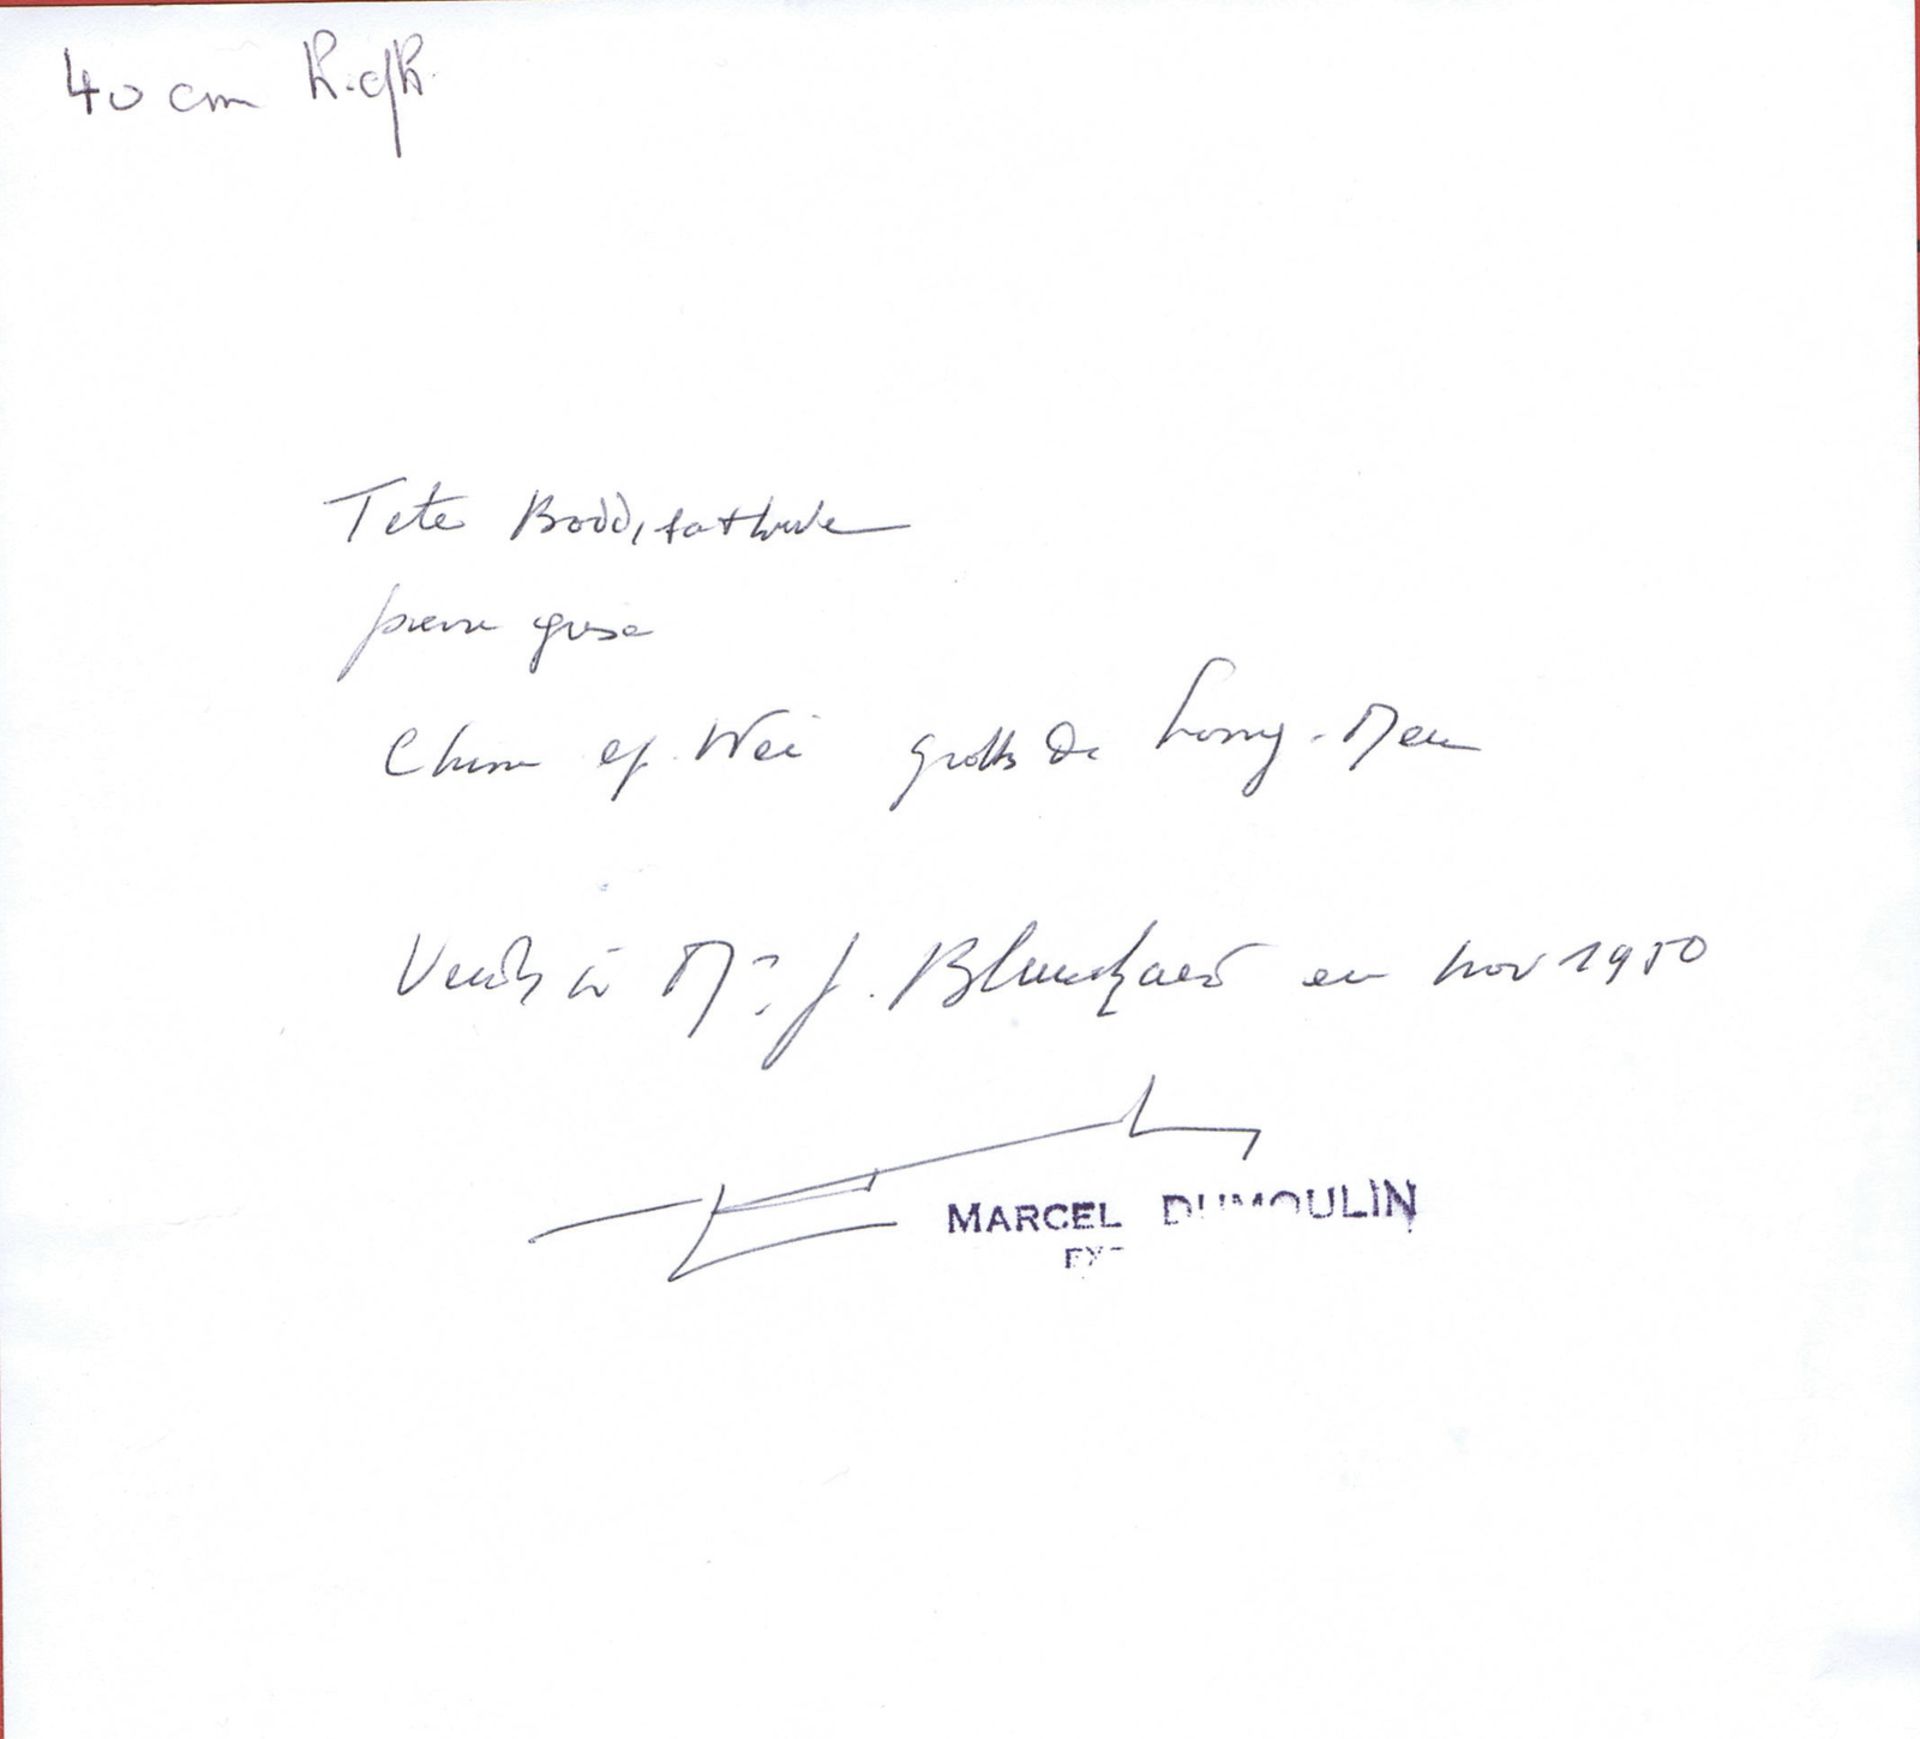 40 cm
Tete Boddisathve
pierre grise
Chine ep. Wei grotte de Long-Men
Vendu à Mr J. Blanchard en nov 1950
MARCEL DUMOULIN